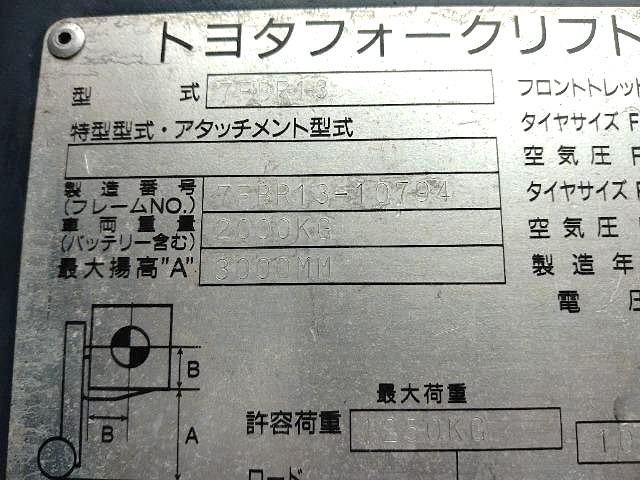 トヨタフォークリフト
型式 7FBR13
特型型式・アタッチメント型式
製造番号
(フレームNO.) 7FBR13-10794
車両重量
(バッテリー含む) 2000KG
最大揚高"A" 3000MM
フロントトレッド
タイヤサイズ F
空気圧 F
タイヤサイズ
空気圧
製造年
電圧
B
B
A
最大荷重
許容荷重 1250KG
10
ロード